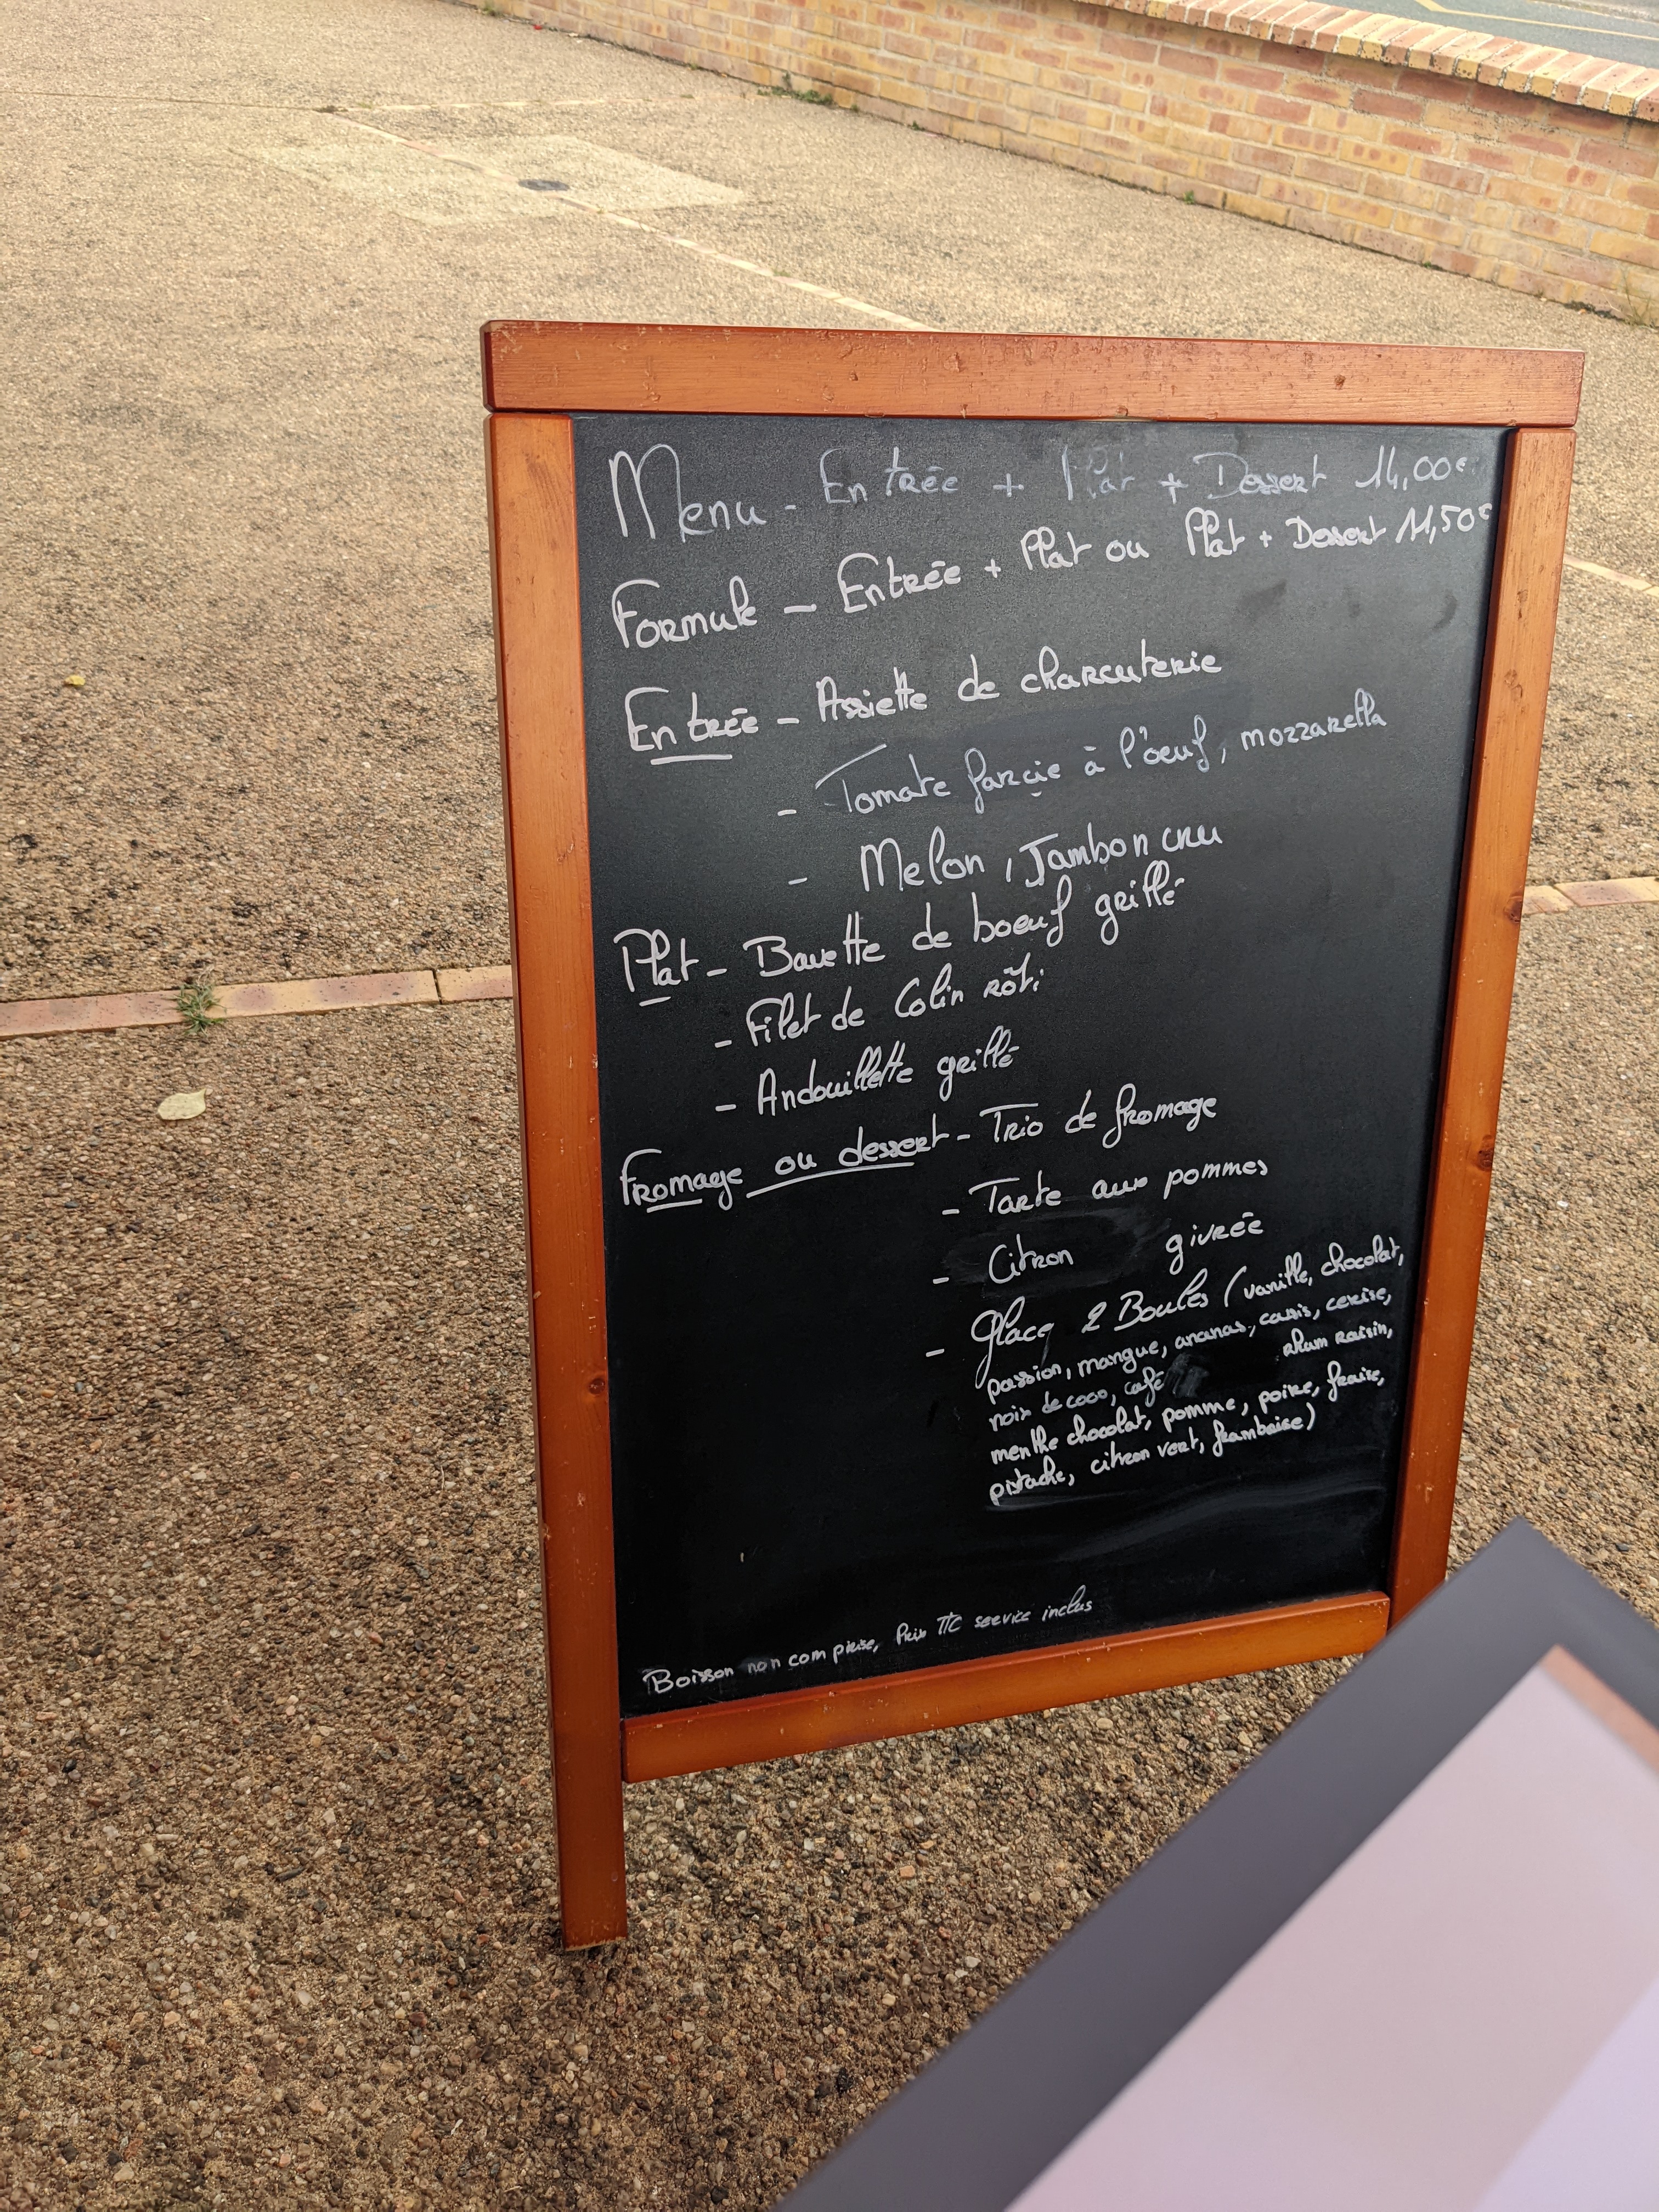 Menu - Entrée + Plat + Dessert 14,00€
Formule - Entrée + Plat ou Plat + Dessert 11,50€
Entrée - Assiette de charcuterie
- Tomate farçie à l'oeuf, mozzarella
- Melon, Jambon cru
Plat - Bavette de boeuf grillé
- Filet de Colin rôti
- Andouillette grillé
Fromage ou dessert - Trio de fromage
- Tarte aux pommes
- Citron givrée
- Glace 2 Boules (vanille, chocolat,
passion, mangue, ananas, cassis, cerise,
noix de coco, café rhum raisin,
menthe chocolat, pomme, poire, fraise,
pistache, citron vert, framboise)
Boisson non comprise, Prix TTC service inclus